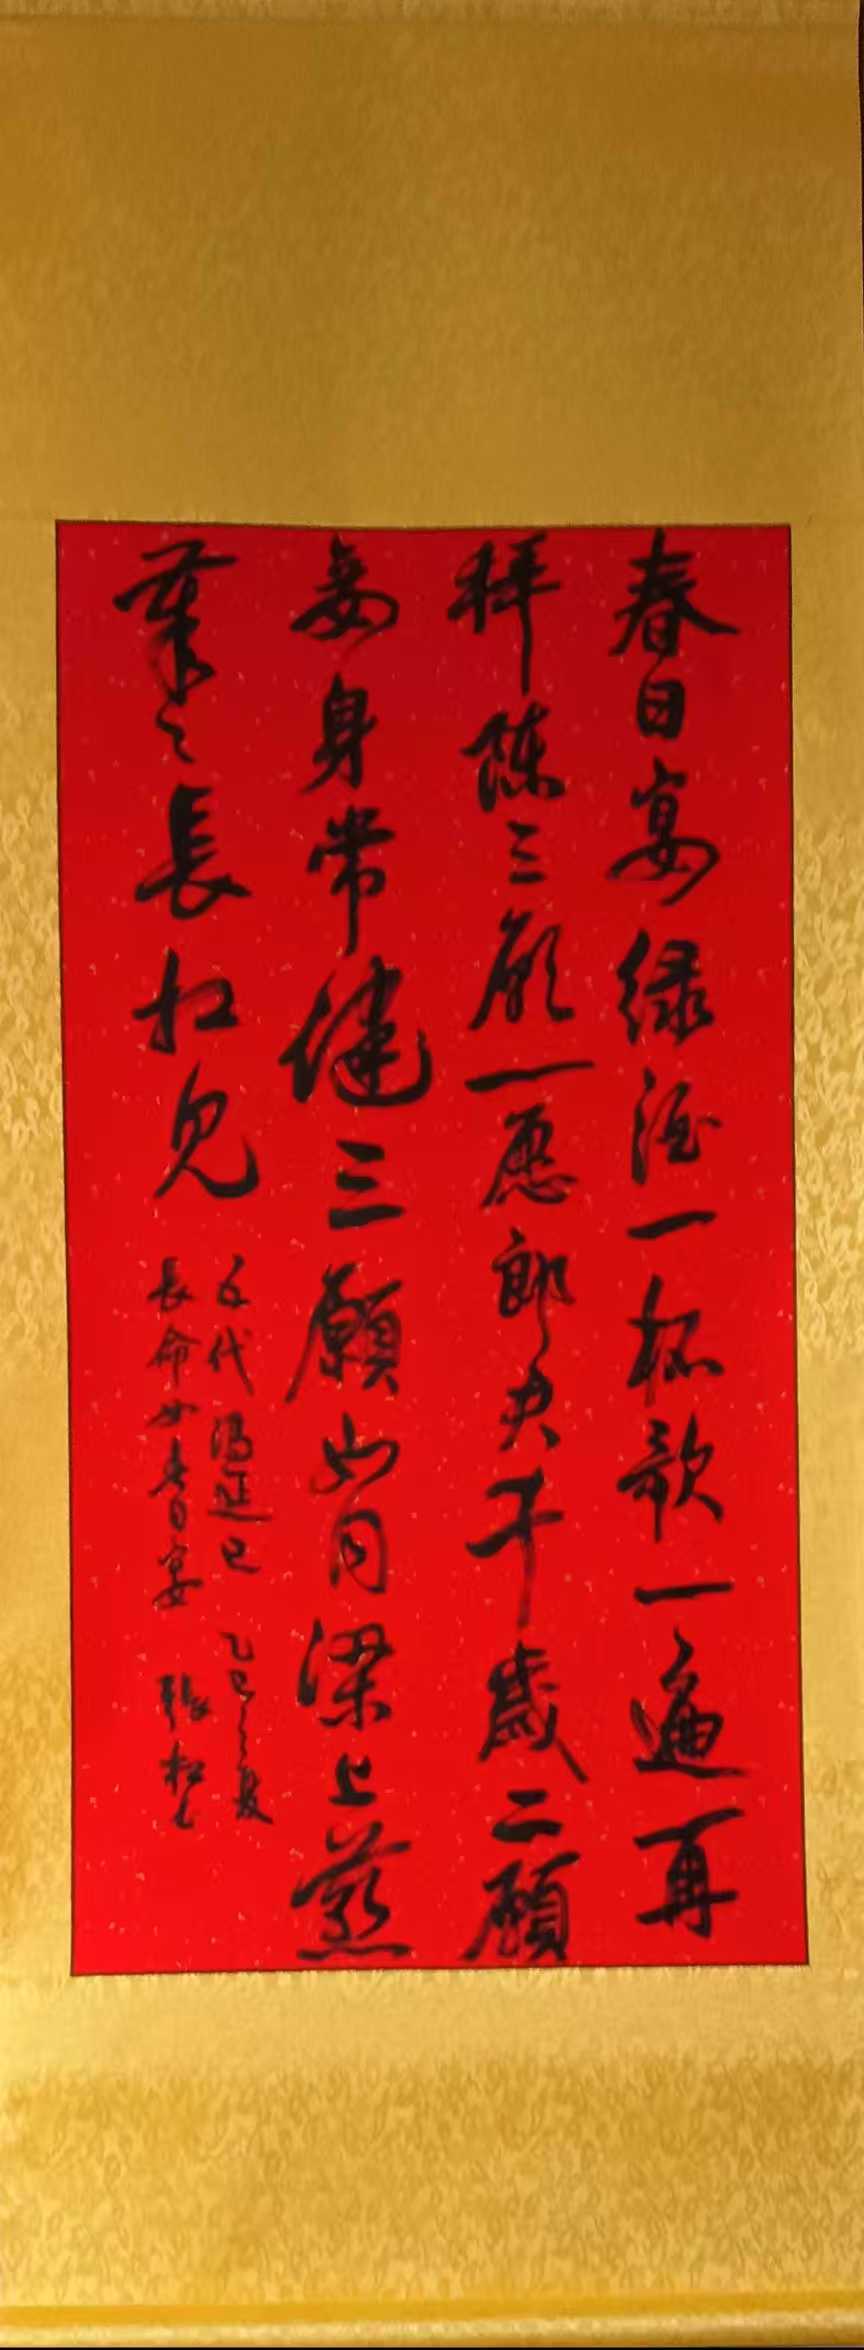 春日宴绿酒一杯歌一遍再
拜陈三愿一愿郎君千歲二願
妾身常健三願如同梁上燕
歲々長相見
五代冯延巳
長命女春日宴
乙巳之夏
張松